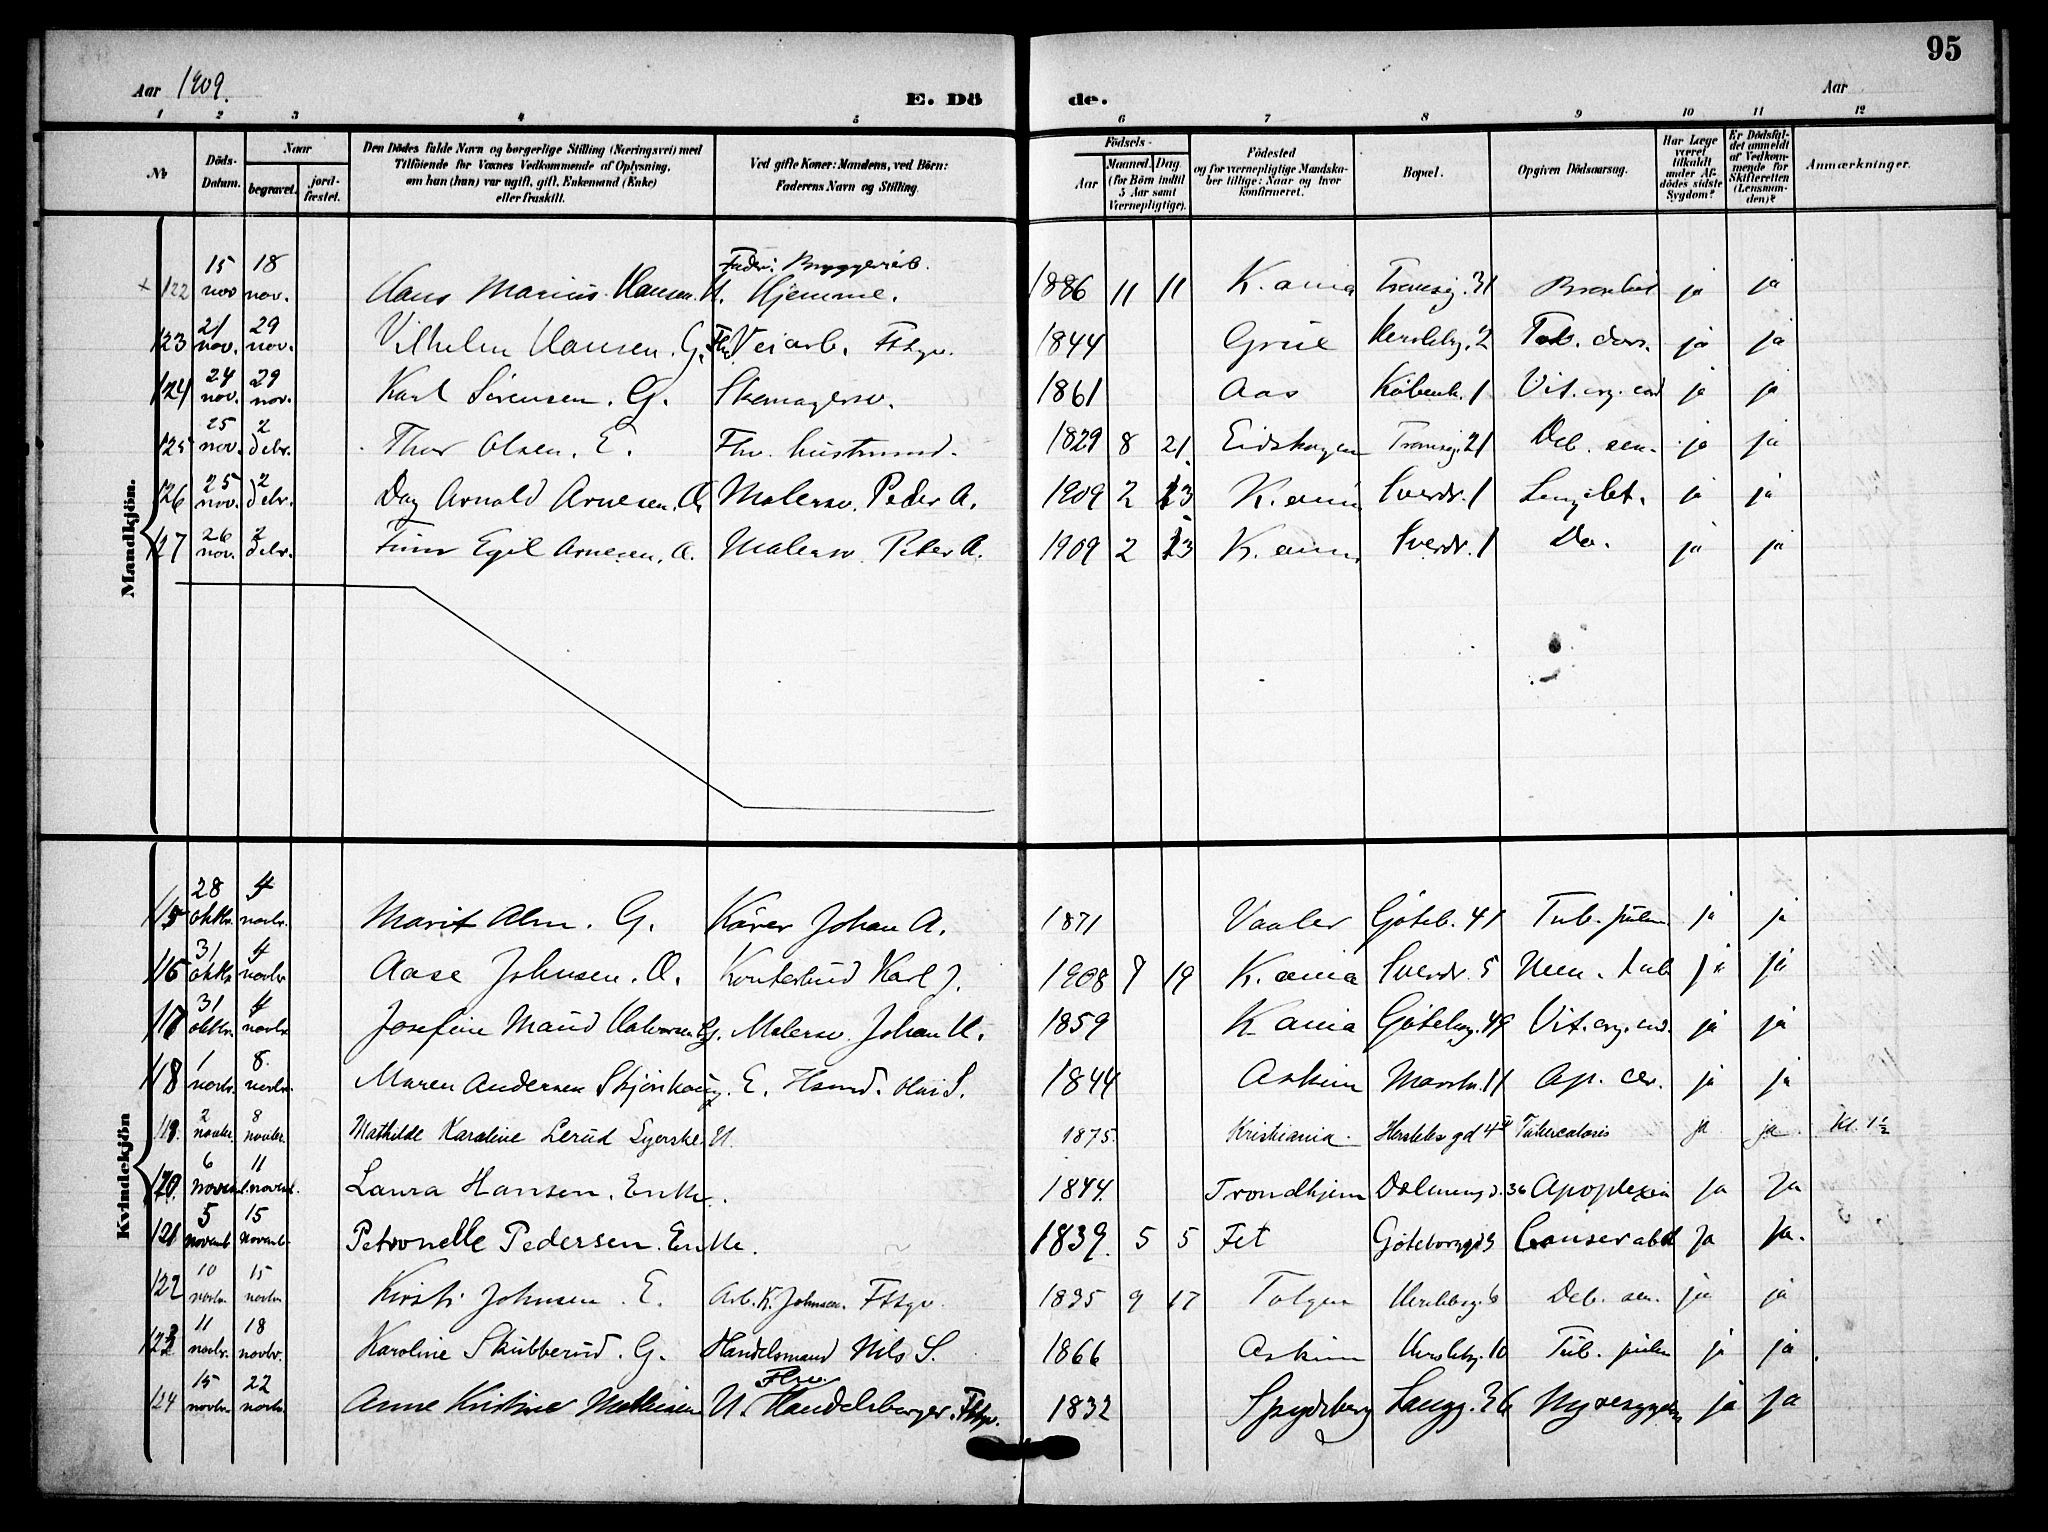 95
Aar 1909.
E. Dö
de.
Aar
1 2 3 4 5 6 7 8 9 10 11 12
No
Döds-Datum.
Naar
begravet.
jord-fæstet.
Den Dödes fulde Navn og borgerlige Stilling (Næringsvei) med Tilföiende for Voxnes Vedkommende af Oplysning, om han (hun) var ugift, gift, Enkemand (Enke) eller fraskilt.
Ved gifte Koner: Mandens, ved Börn: Faderens Navn og Stilling.
Födsels-
Aar
Maaned. Dag.
(for Börn indtil 5 Aar samt Værnepligtige).
Födested og for værnepligtige Mandskaber tillige: Naar og hvor konfirmeret.
Bopæl.
Opgiven Dödsaarsag.
Har Læge været tilkaldt under Afdödes sidste Sygdom?
Er Dödsfaldet anmeldt af Vedkommende for Skifteretten (Lensmanden)?
Anmærkninger.
Mandkjön.
122 15 nov 18 nov. Hans Marius Hansen. U. Hjemme. 1886 11 11 K.ania 31 ja ja
123 21 nov. 29 nov. Vilhelm Hansen. G. Veiarb. Fttgv. 1844 Grue 2 ja ja
124 24 nov. 29 nov. Karl Sörensen. G. Skomagersv. 1861 Aas Köbenh. 1 Vit. org. cord ja ja
125 25 nov. 2 debr. Thor Olsen. E. Fhv. husmand. 1829 8 21 Eidskogen 21 Deb. sen. ja ja
126 25 nov. 2 debr. Dag Arnold Arnesen. U. Malersv. Peder A. 1909 2 13 K.ania Sverdr. 1 ja ja
127 26 nov. 2 debr. Finn Egil Arnesen. U. Malersv. Peter A. 1909 2 13 K.ania Sverdr. 1 Do. ja ja
Kvindekjön
115 28 oktbr. 4 novbr. Marit Alm. G. Körer Johan A. 1871 Vaaler Göteb. 41 Tub. pulm. ja ja
116 31 oktbr 4 novbr Aase Johnsen. U. Kontorbud Karl J. 1908 9 19 K.ania Sverdr. 5 ja ja
117 31 oktbr. 4 novbr. Josefine Maud Halvorsen G. Malersv. Johan H. 1859 K.ania Göteborg. 49 Vit. org. cord. ja ja
118 1 novbr. 8. novbr. Maren Andersen Skjönhaug. E. Hsmd. Olai S. 1844 Askim 11 Ap. cer. ja ja
119. 2 novbr. 8 novbr. Mathilde Karoline Lerud Syerske. U. 1875. Kristiania. Herslebs gd 4 Tuberculosis ja ja. Kl. 1½
120. 6 novemb. 11 novemb. Laura Hansen. Enke. 1844. Trondhjem Dæleneng d. 36 Apoplexia ja Ja
121 5 novemb 15 novemb. Petronelle Pedersen. Enke. 1839. 5 5 Fet Ja Ja.
122 10 novbr. 15 novbr. Kirsti Johnsen. E. Arb. K. Johnsen. Fttgv. 1835 9 17 Tolgen Herslebg. 6 Deb. sen. ja ja
123 11 novbr. 18 novbr. Karoline Skubberud. G. Handelsmand Nils S. 1866 Askim Herslebg. 10 Tub. pulm ja ja
124 15 novbr. 22 novbr. Anne Kristine Mathisen U. Fhv. Handelsborger. Fttgv. 1832 Spydeberg Langg. 36 Nyresygdom ja ja